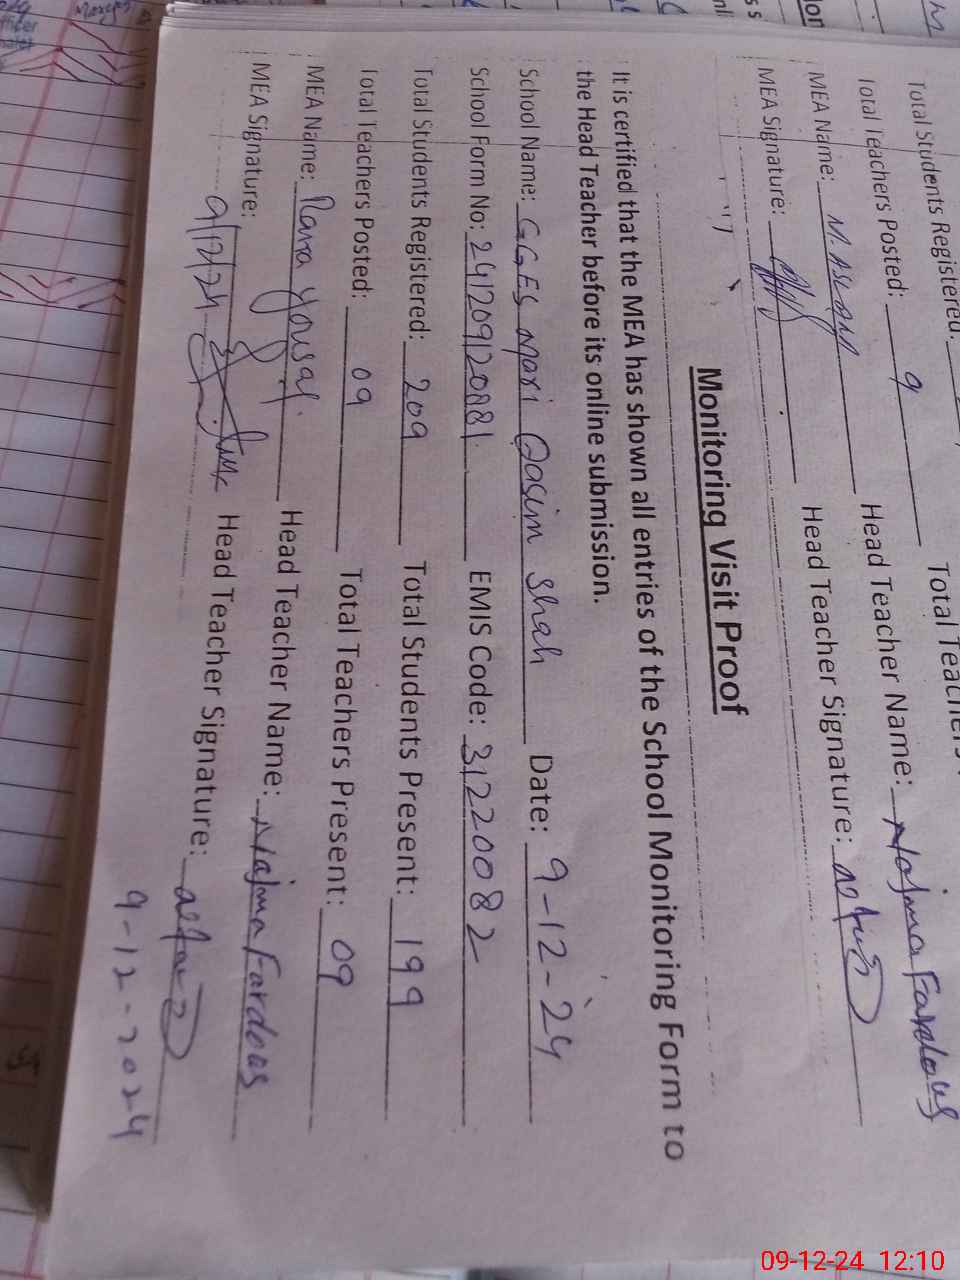 Total Students Registered:
Total Teachers Posted: 9 Total Teachers
MEA Name: M. ASLAM Head Teacher Name: Najma Fardous
MEA Signature: Head Teacher Signature:
Monitoring Visit Proof
It is certified that the MEA has shown all entries of the School Monitoring Form to
the Head Teacher before its online submission.
School Name: GGES Mari Qasim Shah Date: 9-12-24
School Form No: EMIS Code: 31220082
Total Students Registered: 209 Total Students Present: 199
Total Teachers Posted: 09 Total Teachers Present: 09
MEA Name: Rana Yousaf. Head Teacher Name: Najma Fardous
MEA Signature: Head Teacher Signature:
9/12/24
9-12-2024
09-12-24 12:10